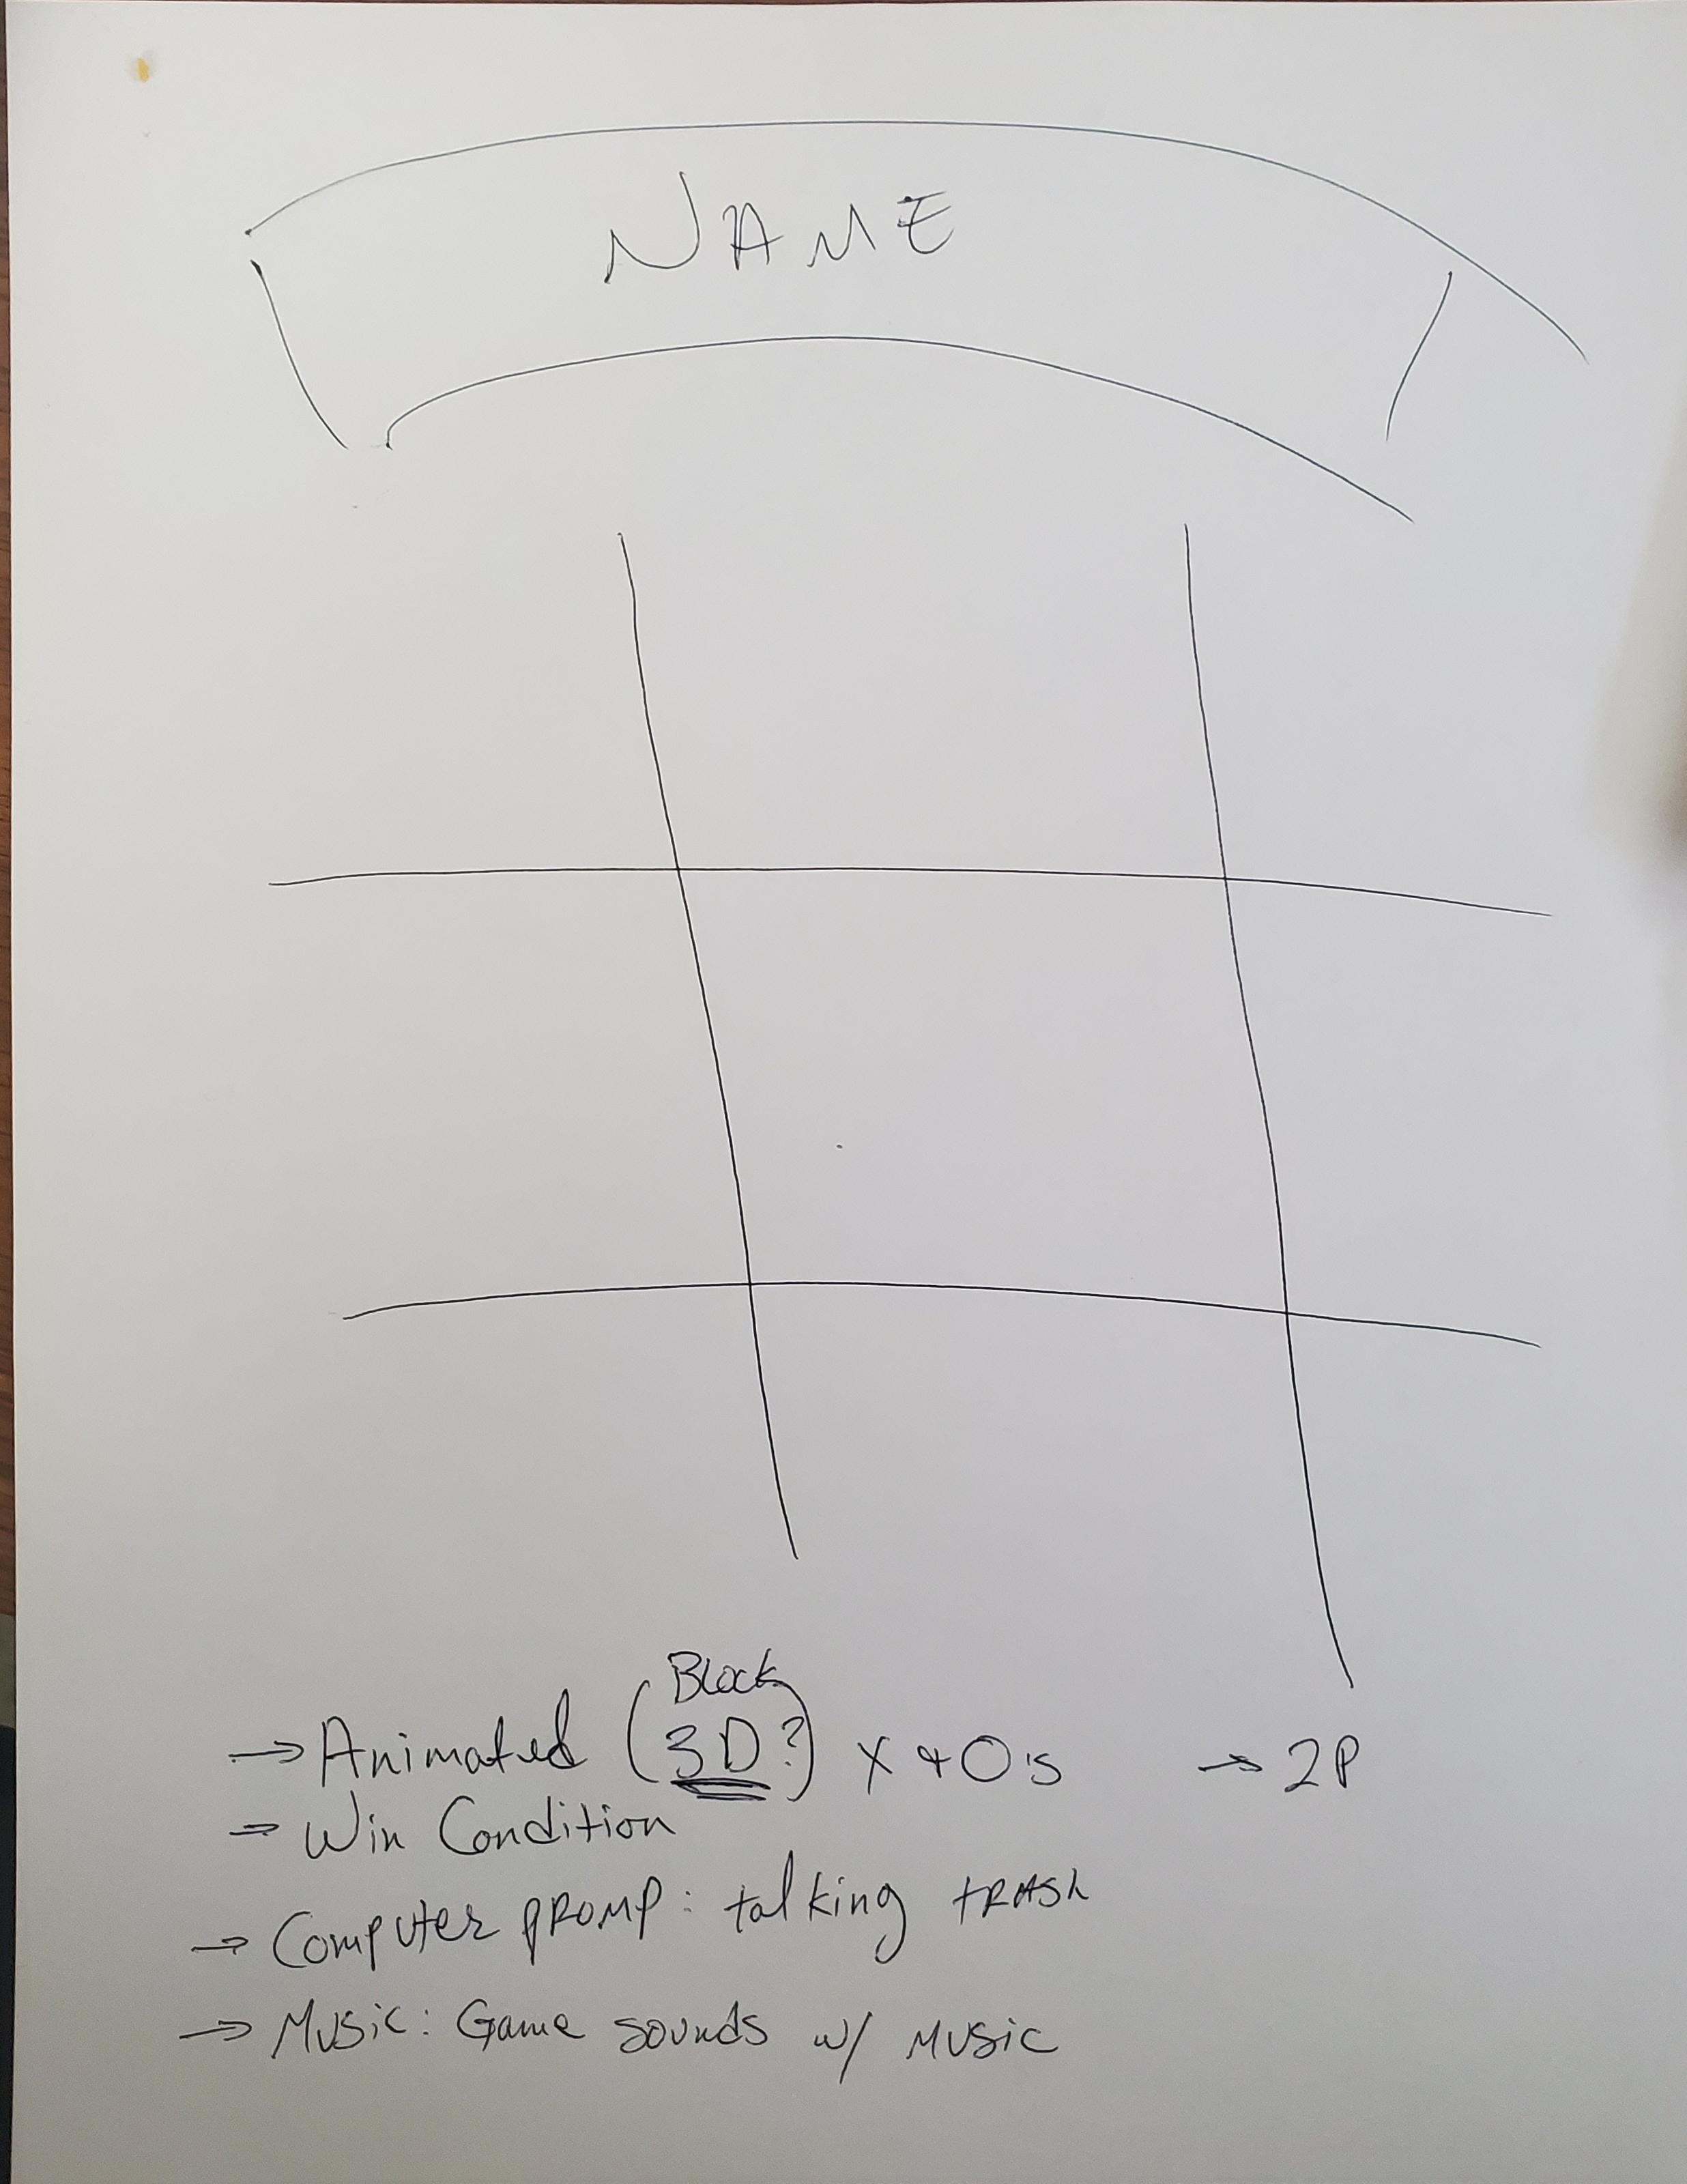 NAME
Block
→ Animated (3D?) X + O's → 2P
→ Win Condition
→ Computer promp: talking trash
→ Music: Game sounds w/ Music